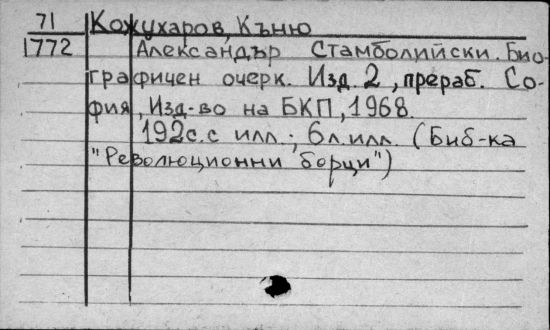 71 Кожухаров, Къню
1772 Александър Стамболийски. Био-
графичен очерк. Изд. 2, прераб. Со-
фия, Изд-во на БКП, 1968.
192с. с илл.; 6л. илл. (Биб-ка
"Революционни борци")